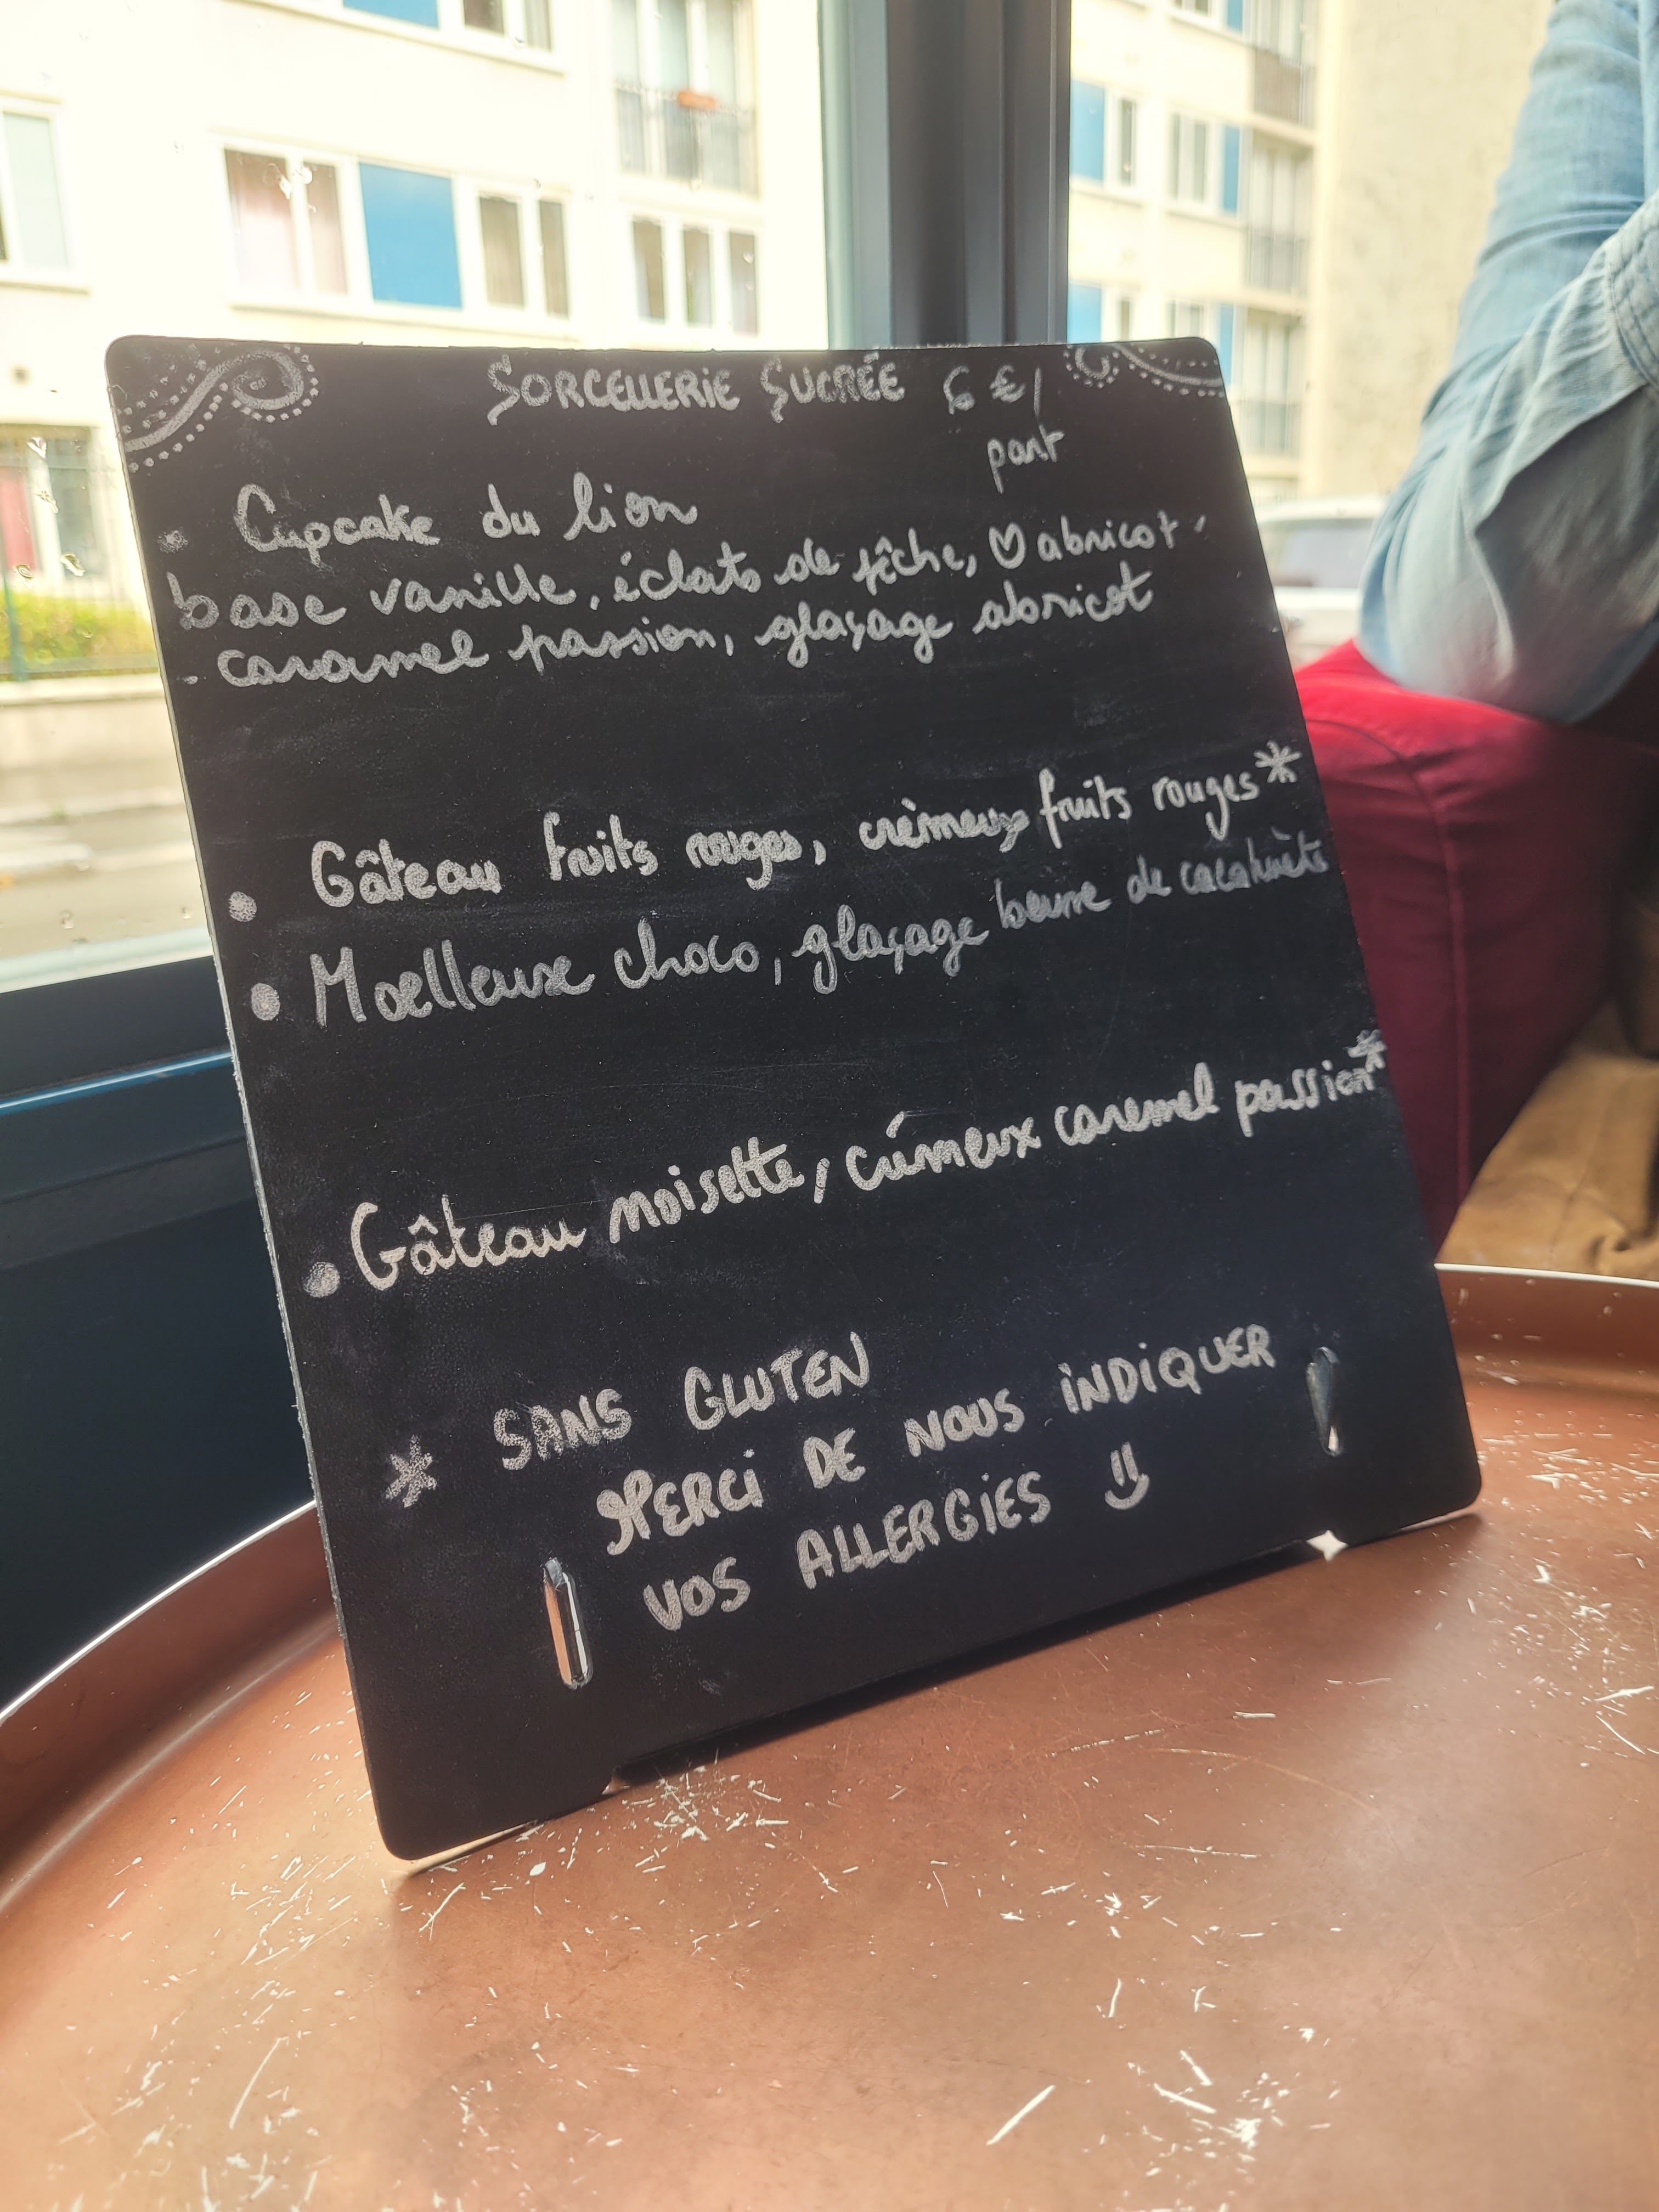 SORCELLERIE SUCRÉE 6 €/
part
• Cupcake du lion
base vanille, éclats de pêche, ♡ abricot -
- caramel passion, glaçage abricot
• Gâteau fruits rouges, crèmeux fruits rouges*
• Moelleuse choco, glaçage beurre de cacahuèts
• Gâteau noisette, crémeux caramel passion*
* SANS GLUTEN
MERCI DE NOUS INDIQUER
VOS ALLERGIES